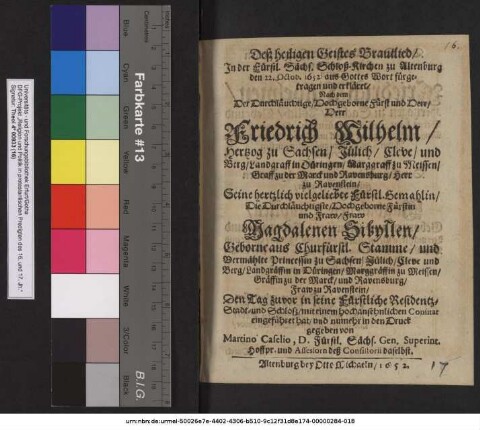 Universitäts- und Forschungsbibliothek Erfurt/Gotha
Signatur: Theol 4° 00833 (16)
Farbkarte #13
Blue
Cyan
Green
Yellow
Red
Magenta
White
3/Color
Black
B.I.G.
16.
Deß heiligen Geistes Brautlied/
In der Fürstl. Sächs. Schloß-Kirchen zu Altenburg
den 22. Octob. 1652 aus Gottes Wort fürge-
tragen und erkläret/
Nach dem
Der Durchläuchtige/ Hochgeborne Fürst und Herr/
Herr
Friedrich Wilhelm/
Hertzog zu Sachsen/ Jülich/ Cleve/ und
Berg/ Landgraff in Düringen/ Marggraff zu Meissen/
Graff zu der Marck und Ravensburg/ Herr
zu Ravenstein/
Seine hertzlich vielgeliebte Fürstl. Gemahlin/
Die Durchläuchtigste/ Hochgeborne Fürstin
und Fraw/ Fraw
Magdalenen Sibyllen/
Geborne aus Churfürstl. Stamme/ und
Vermählte Princessin zu Sachsen/ Jülich/ Cleve und
Berg/ Landgräffin in Düringen/ Marggräffin zu Meissen/
Gräffin zu der Marck/ und Ravensburg/
Fraw zu Ravenstein/
Den Tag zuvor in seine Fürstliche Residentz-
Stadt/ und Schloß/ mit einem hochansehnlichen Comitat
eingeführet hat/ und nunmehr in den Druck
gegeben von
Martino Caselio, D. Fürstl. Sächs. Gen. Superint.
Hoffpr. und Assessorn deß Consistorii daselbst.
Altenburg bey Otto Michaeln/ 1652.
17
urn:nbn:de:urmel-50026e7e-4402-4306-b510-9c12f31d8e174-00000284-018